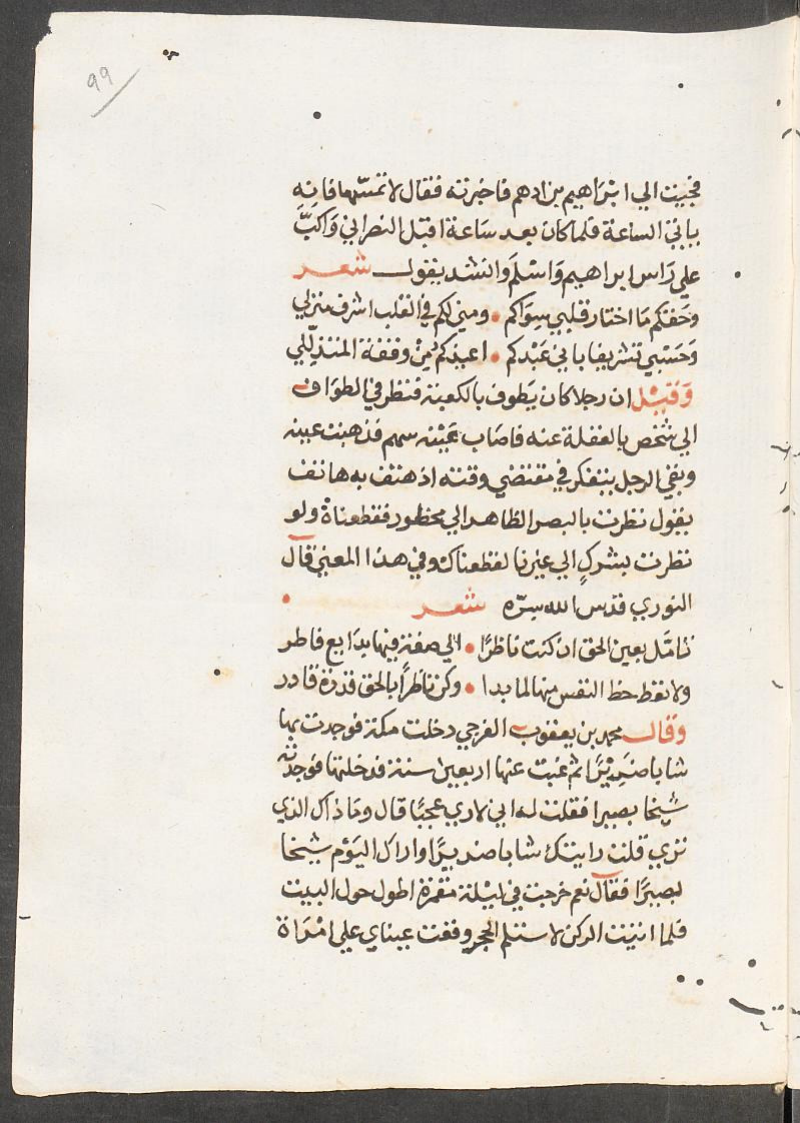 99
فجيت الي ابْرَاهيم بن ادهم فاخبرته فقال لا تمسّها فانه
ياتي الساعة فلما كان بعد سَاعة اقبل النصراني وَاكبَّ
علي رَاس ابراهيم وَاسْلَم وانشد يقول شعر
وحَقكم مَا اختار قلبي سِوَاكم • ومني لكم في القلب اشرف منزلي
وَحَسْبي تشريفا باني عَبْدكم • اعيذكمُ مِنْ وقفة المتذلّلي
وَقيْل ان رجلا كان يَطوف بالكعبة فنظر في الطوَاف
الي شخص بالغفلة عنه فاصَاب عَيْنه سهم فذهبت عينه
وبقي الرجل يتفكر في مقتضي وقته اذ هتف به هاتف
يقول نظرت بالبصر الظاهر الي محظور فقطعناهُ ولو
نظرت بشركٍ الي غيرنا لقطعناك وفي هذا المعني قال
النوري قدس الله سِرّه شعر •
تامّل بعين الحق ان كنت ناظرًا • الي صفة فيها بدَايع فاطر
ولا تعط حظ النفس منها لما بدا • وكن ناظراً بالحق قدرة قادر
وقال محمد بن يعقوب الفرجي دخلت مكة فوجدت بها
شابا ضَرِيْرًا ثم غبت عنها اربعين سنة فدخلتها فوَجدْته
شيخا بصيرا فقلت له اني لاري عجبًا قال ومَا ذاك الذي
تري قلت رايتك شابا ضريرًا واراك اليَوْم شيخا
بصيرًا فقال نعم خرجت في ليْلة مقمرة اطول حول البيت
فلما اتيت الركن لاستلم الحجر وقعت عيناي علي امْرَاة